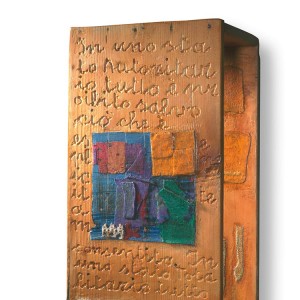 In uno sta
to autoritar
io tutto è pr
oibito salvo
ciò che è
consentito. In
uno stato tota
litario tutto